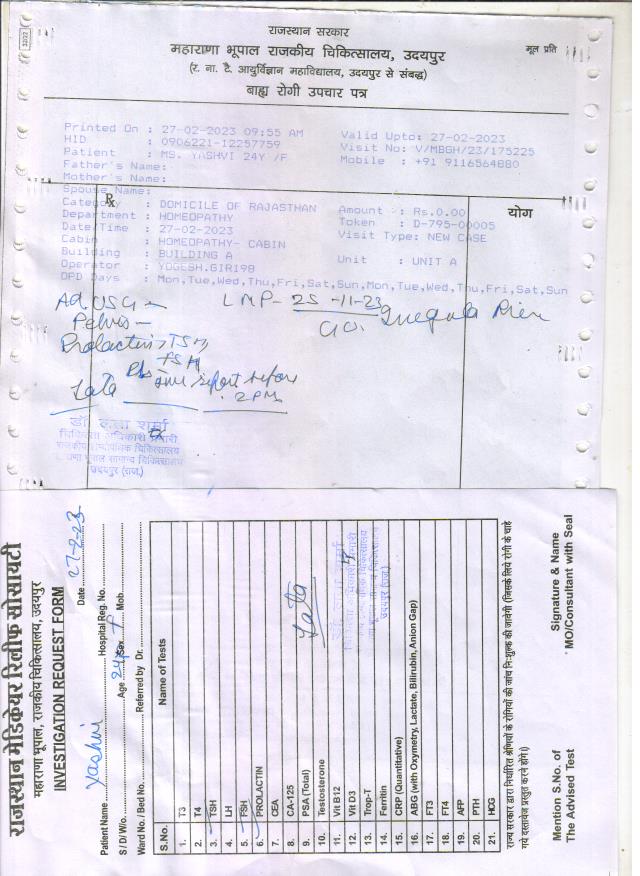 राजस्थान सरकार
महाराणा भूपाल राजकीय चिकित्सालय, उदयपुर
मूल प्रति
(र. ना. टै. आयुर्विज्ञान महाविद्यालय, उदयपुर से संबद्ध)
बाह्य रोगी उपचार पत्र
Printed On : 27-02-2023 09:55 AM Valid Upto: 27-02-2023
HID : 0906221-12257759 Visit No: V/MBGH/23/175225
Patient : MS. YASHVI 24Y /F Mobile : +91 9116564880
Father's Name:
Mother's Name:
Spouse Name:
Rx
योग
Category : DOMICILE OF RAJASTHAN Amount : Rs.0.00
Department : HOMEOPATHY Token : D-795-00005
Date/Time : 27-02-2023 Visit Type: NEW CASE
Cabin : HOMEOPATHY- CABIN
Building : BUILDING A Unit : UNIT A
Operator : YOGESH.GIRI98
OPD Days : Mon,Tue,Wed,Thu,Fri,Sat,Sun,Mon,Tue,Wed,Thu,Fri,Sat,Sun
Ad USG - LMP- 25-11-23
Pelvis -
Prolactin, TSH,
FSH
Pls give report before
2 PM
Lata
डॉ. लता शर्मा
चिकित्सा अधिकारी प्रभारी
उदयपुर (राज.)
राजस्थान मेडिकेयर रिलीफ सोसायटी
महाराणा भूपाल, राजकीय चिकित्सालय, उदयपुर
INVESTIGATION REQUEST FORM
Date 27-2-23
Patient Name Yashvi Hospital Reg. No.
S / D/ W/o. Age 24y Sex F Mob.
Ward No. / Bed No. Referred by Dr.
S.No. Name of Tests
1. T3
2. T4
3. TSH
4. LH
5. FSH
6. PROLACTIN
7. CEA
8. CA-125
9. PSA (Total)
10. Testosterone
11. Vit B12
12. Vit D3
13. Trop-T
14. Ferritin
15. CRP (Quantitative)
16. ABG (with Oxymetry, Lactate, Bilirubin, Anion Gap)
17. FT3
18. FT4
19. AFP
20. PTH
21. HCG
Lata
उदयपुर (राज.)
राज्य सरकार द्वारा निर्धारित श्रेणियों के रोगियों की जांच नि:शुल्क की जावेगी (जिसके लिये रोगी के चाहे
गये दस्तावेज प्रस्तुत करने होंगे।)
Mention S.No. of
The Advised Test
Signature & Name
MO/Consultant with Seal